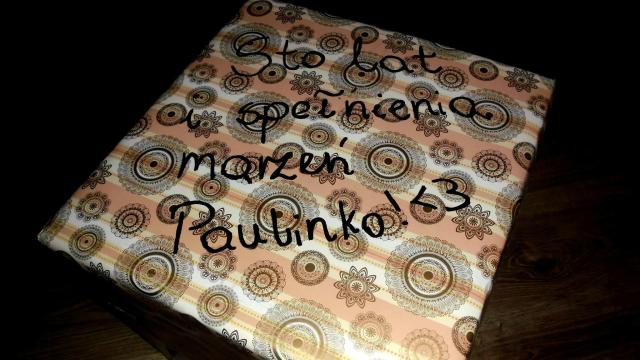 Sto lat
i spełnienia
marzeń
Paulinko! <3